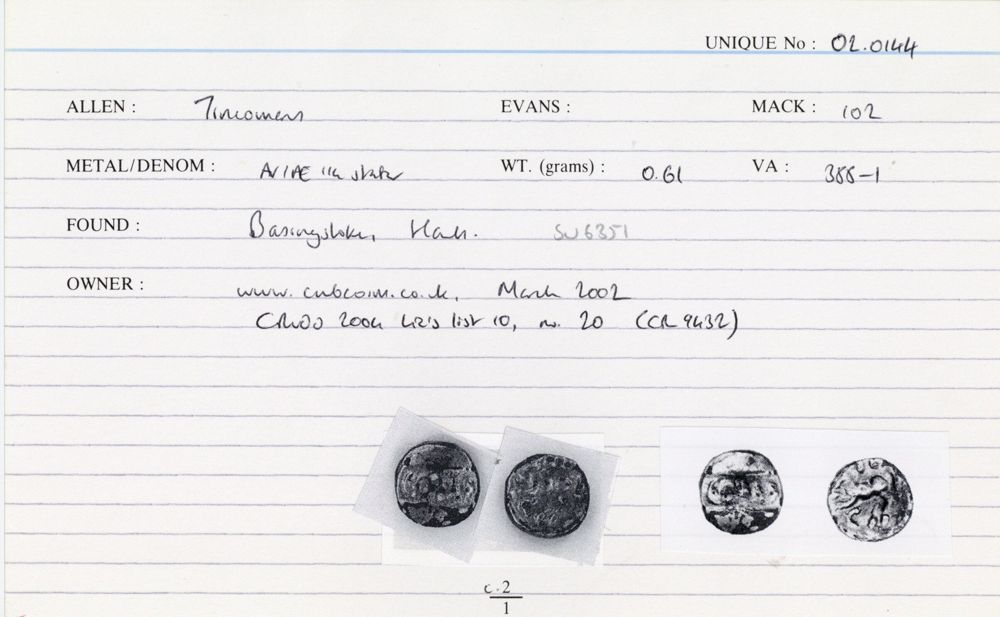 UNIQUE No : 02.0144
ALLEN : Tincomarus EVANS : MACK : 102
METAL/DENOM : AV/AE 1/4 stater WT. (grams) : 0.61 VA : 388-1
FOUND : Basingstoke, Hants. SU6351
OWNER : March 2002
2004 Liz's list 10, no. 20 (CR 9432)
c.2
1